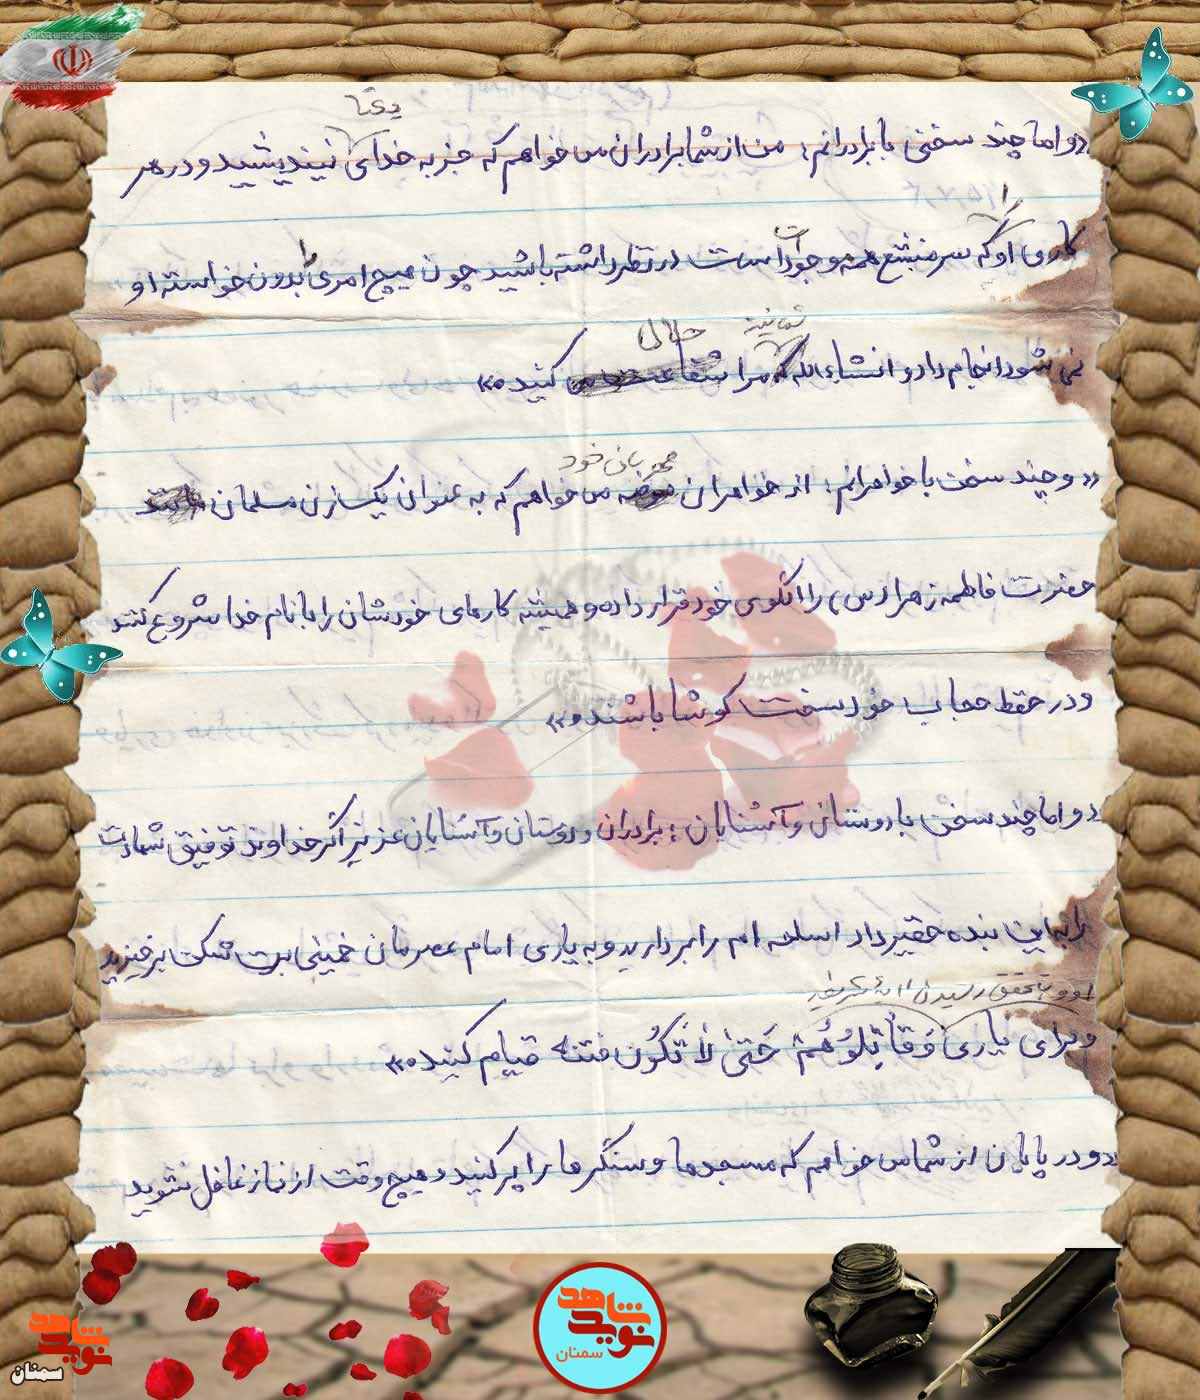 یکتا
«و اما چند سخنی با برادرانم: من از شما برادران می خواهم که جز به خدای نیندیشید و در هر
کاری او را که سر منشع همه وجودات است در نظر داشته باشید چون هیچ امری را بدون خواسته او
نمی شود انجام داد و انشاءالله که شما نیز مرا حلال کنید.»
مهربان خود
«و چند سخن با خواهرانم: از خواهران می خواهم که به عنوان یک زن مسلمان
حضرت فاطمه زهرا (س) را الگوی خود قرار داده و همیشه کارهای خودشان را با نام خدا شروع کنند
و در حفظ حجاب خود سخت کوشا باشند.»
«و اما چند سخن با دوستان و آشنایان: برادران و دوستان و آشنایان عزیز اگر خداوند توفیق شهادت
را به این بنده حقیر داد اسلحه ام را بردارید و به یاری امام عصرمان خمینی بت شکن برخیزید
و به تحقق رسیدن آیه شریفه
و برای یاری وَ قاتِلُوهُمْ حَتیٰ لاٰ تَکُون فتنة قیام کنید.»
«و در پایان از شما می خواهم که مسجدها و سنگرها را پر کنید و هیچ وقت از نماز غافل نشوید
نوید شاهد
سمنان
نوید شاهد
سمنان